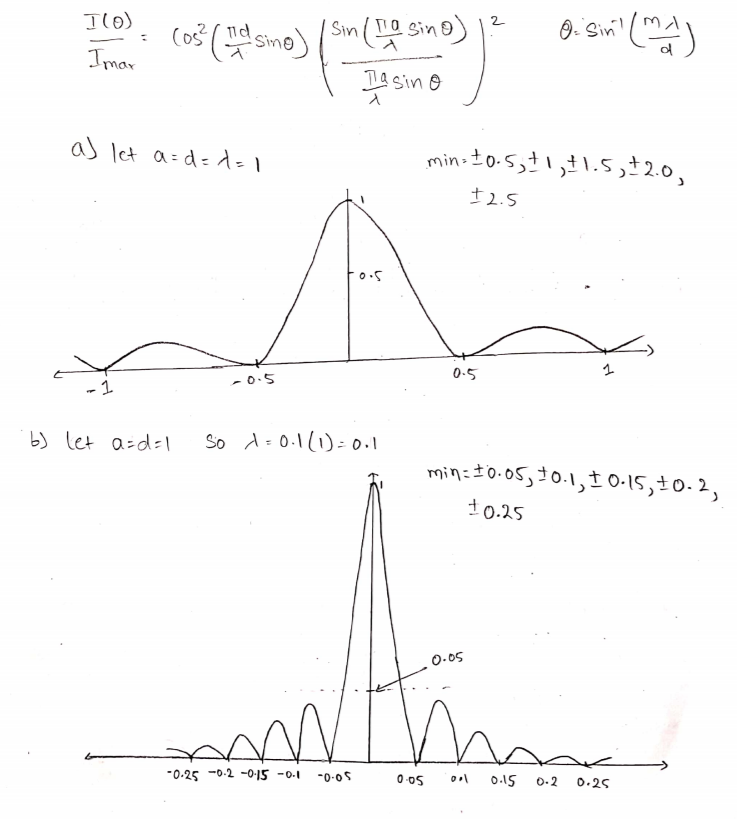 I(θ)/Imax = Cos²(πd/λ sinθ) (Sin(πa/λ sinθ) / (πa/λ sinθ))² θ = Sin⁻¹(mλ/d)
a) let a=d=λ=1
min=±0.5,±1,±1.5,±2.0,
±2.5
1
0.5
-1 -0.5 0.5 1
b) let a=d=1 So λ=0.1(1)=0.1
min=±0.05,±0.1,±0.15,±0.2,
±0.25
1
0.05
-0.25 -0.2 -0.15 -0.1 -0.05 0.05 0.1 0.15 0.2 0.25